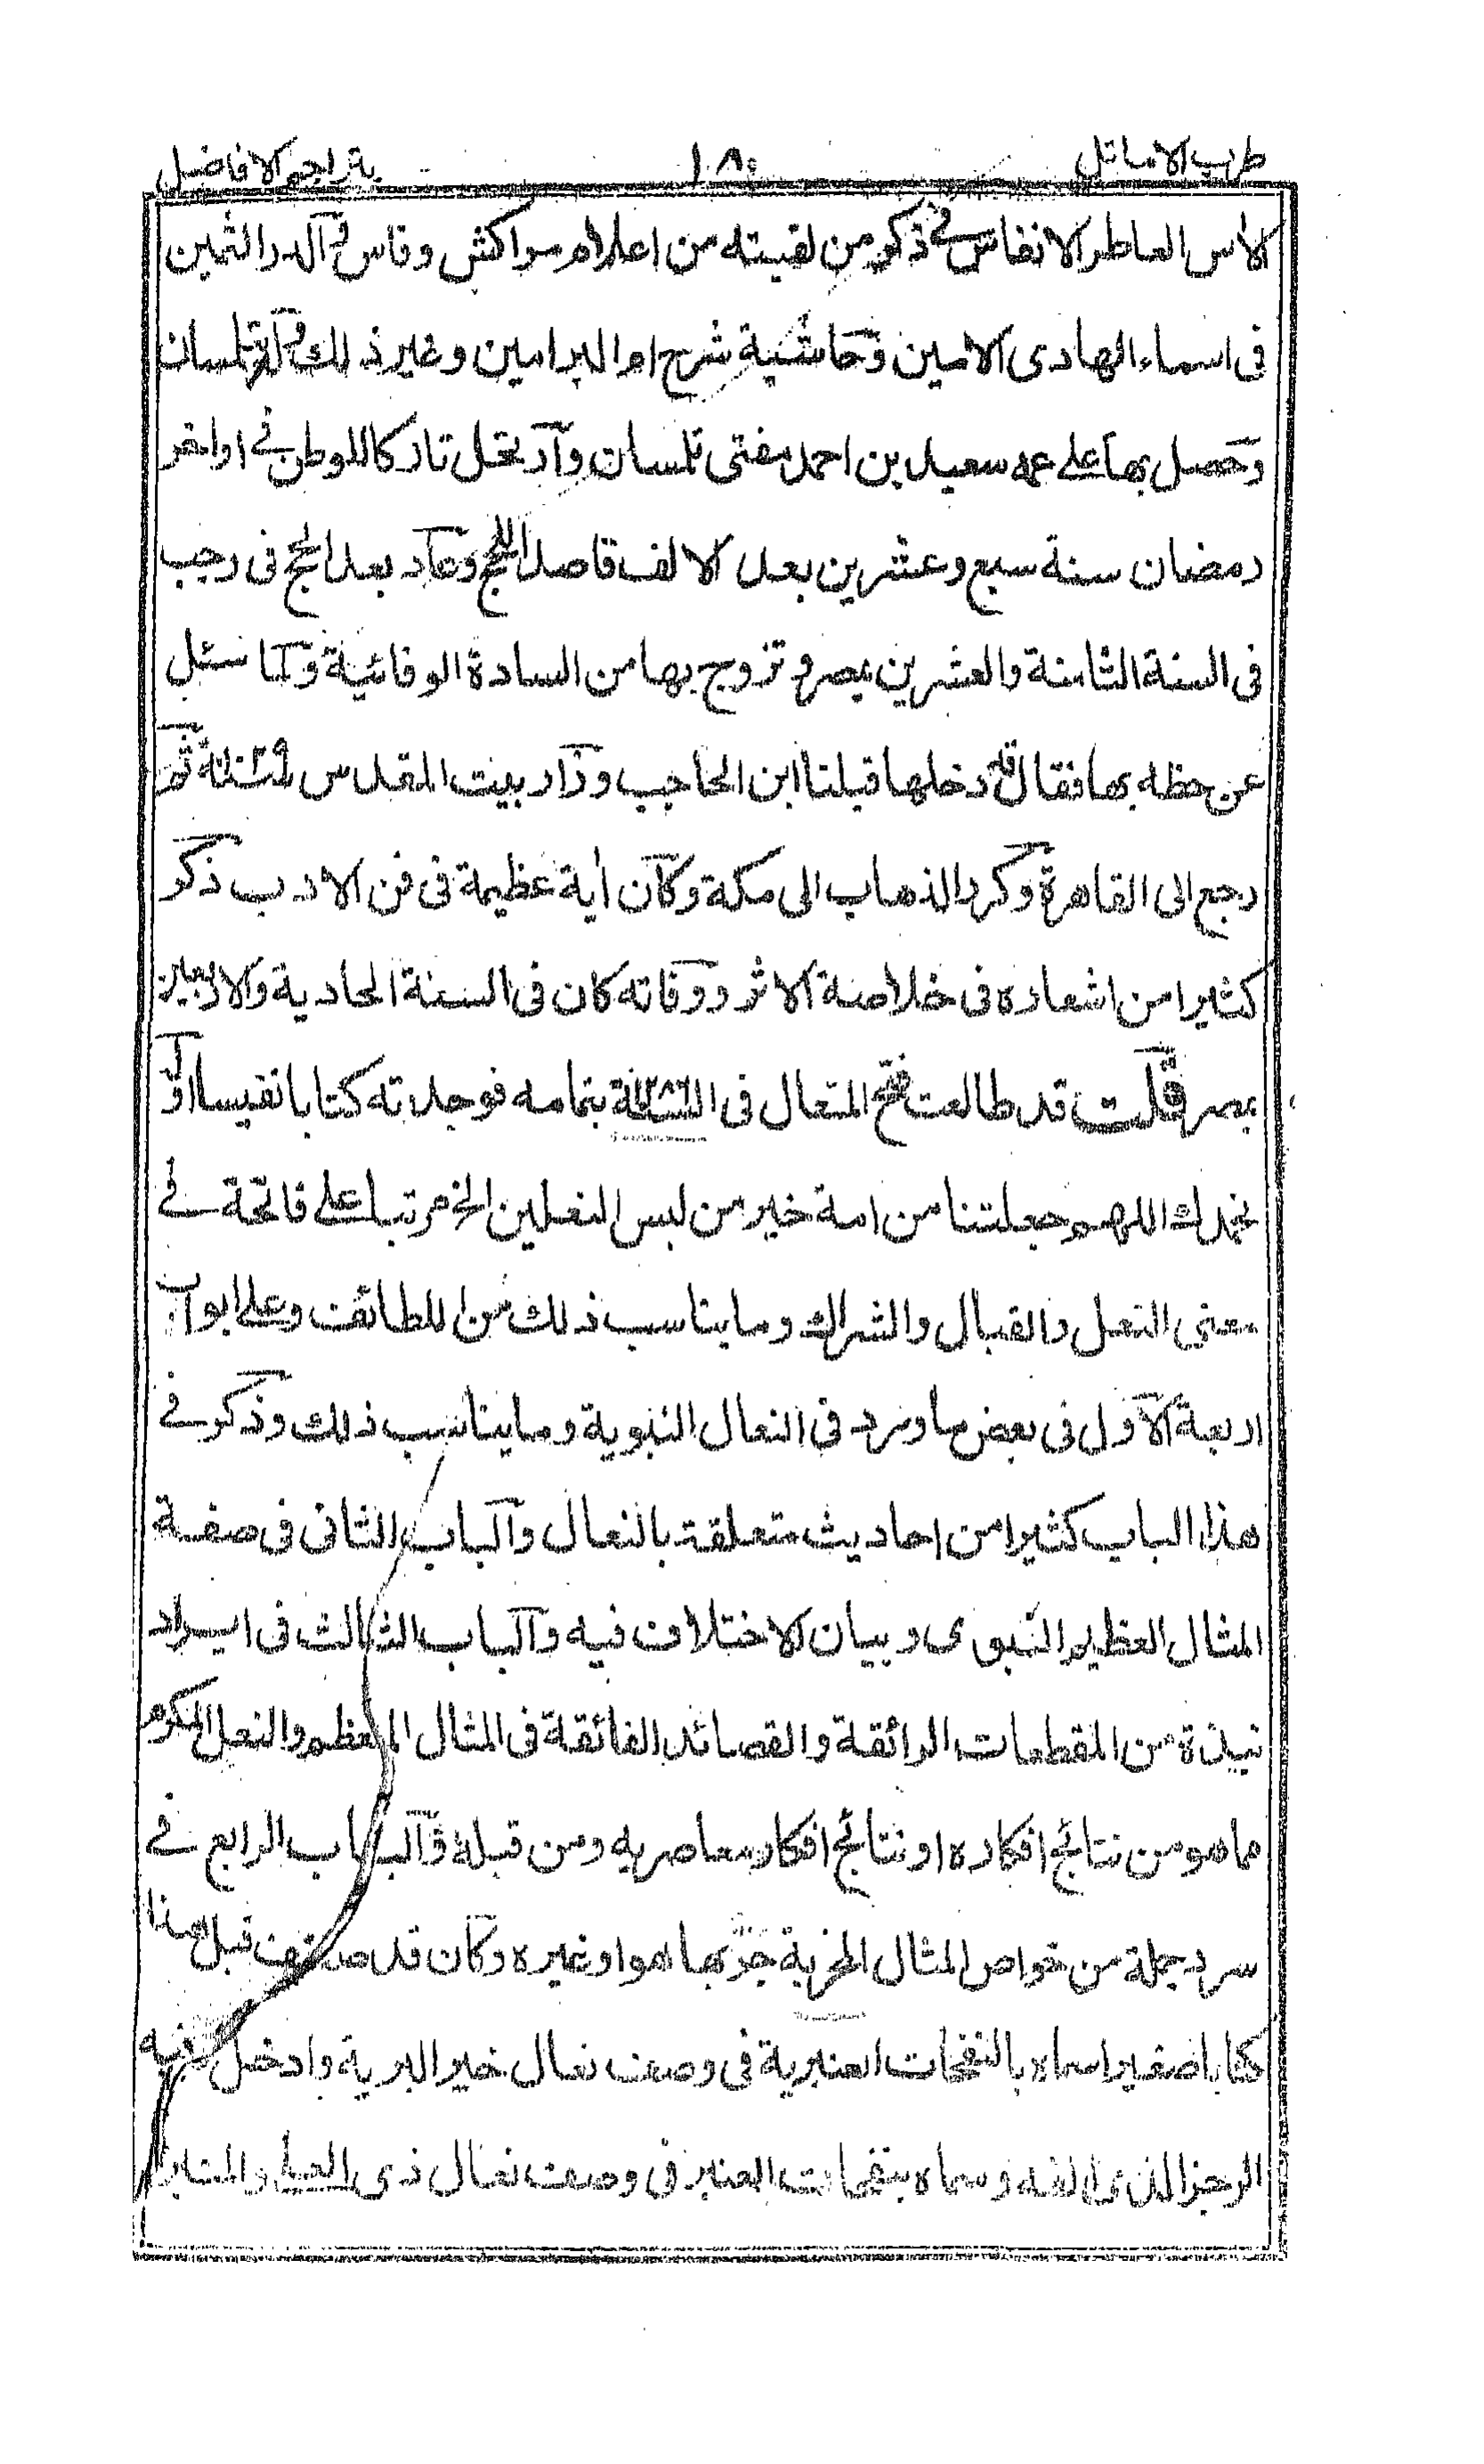 طرب الاماثل ١٨٠ بتراجم الافاضل
الآس العاطر الانفاس في ذكر من لقيته من اعلام مراكش وفاس والدر الثمين
في اسماء الهادى الامين وحاشية شرح ام البراهين وغير ذلك ولد بتلمسان
وحصل بها على عمه سعيد بن احمد مفتى تلمسان وارتحل تاركا للوطن في اواخر
رمضان سنة سبع وعشرين بعد الالف قاصدا للحج وعاد بعد الحج فى رجب
فى السنة الثامنة والعشرين بمصر و تزوج بها من السادة الوفائية ولما سئل
عن حظه بها فقال قد دخلها قبلنا ابن الحاجب وزار بيت المقدس ١٠٢٩ ثم
رجع الى القاهرة وكرر الذهاب الى مكة وكان أية عظيمة فى فن الادب ذكر
كثيرا من اشعاره فى خلاصة الاثر ووفاته كان فى السنة الحادية والاربعين
بمصر قلت قد طالعت فتح المتعال فى السنة ١٢٨٦ بتمامه فوجدته كتابا نفيسا اوله
نحمدك اللهم جعلتنا من امة خير من لبس النعلين الخ مرتبا على فاتحة في
معنى النعل والقبال والشراك وما يناسب ذلك من اللطائف وعلى ابواب
اربعة الاول فى بعض ما ورد فى النعال النبوية وما يناسب ذلك وذكر في
هذا الباب كثيرا من احاديث متعلقة بالنعال والباب الثانى فى صفة
المثال العظيم النبوى وبيان الاختلاف فيه والباب الثالث فى ايراد
نبيذة من المقطعات الرائقة والقصائد الفائقة فى المثال المعظم والنعل المكرم
مما هو من نتائج افكاره او نتائج افكار معاصريه ومن قبله والباب الرابع في
سرد جملة من خواص المثال المجربة جربها هو او غيره وكان قد صنف قبل هذا
كتابا صغيرا سماه بالنفحات العنبرية فى وصف نعال خير البرية وادخل فيه
الرجز الذى الفه وسماه بنفحات العنبر فى وصف نعال ذى العلا والمنبر